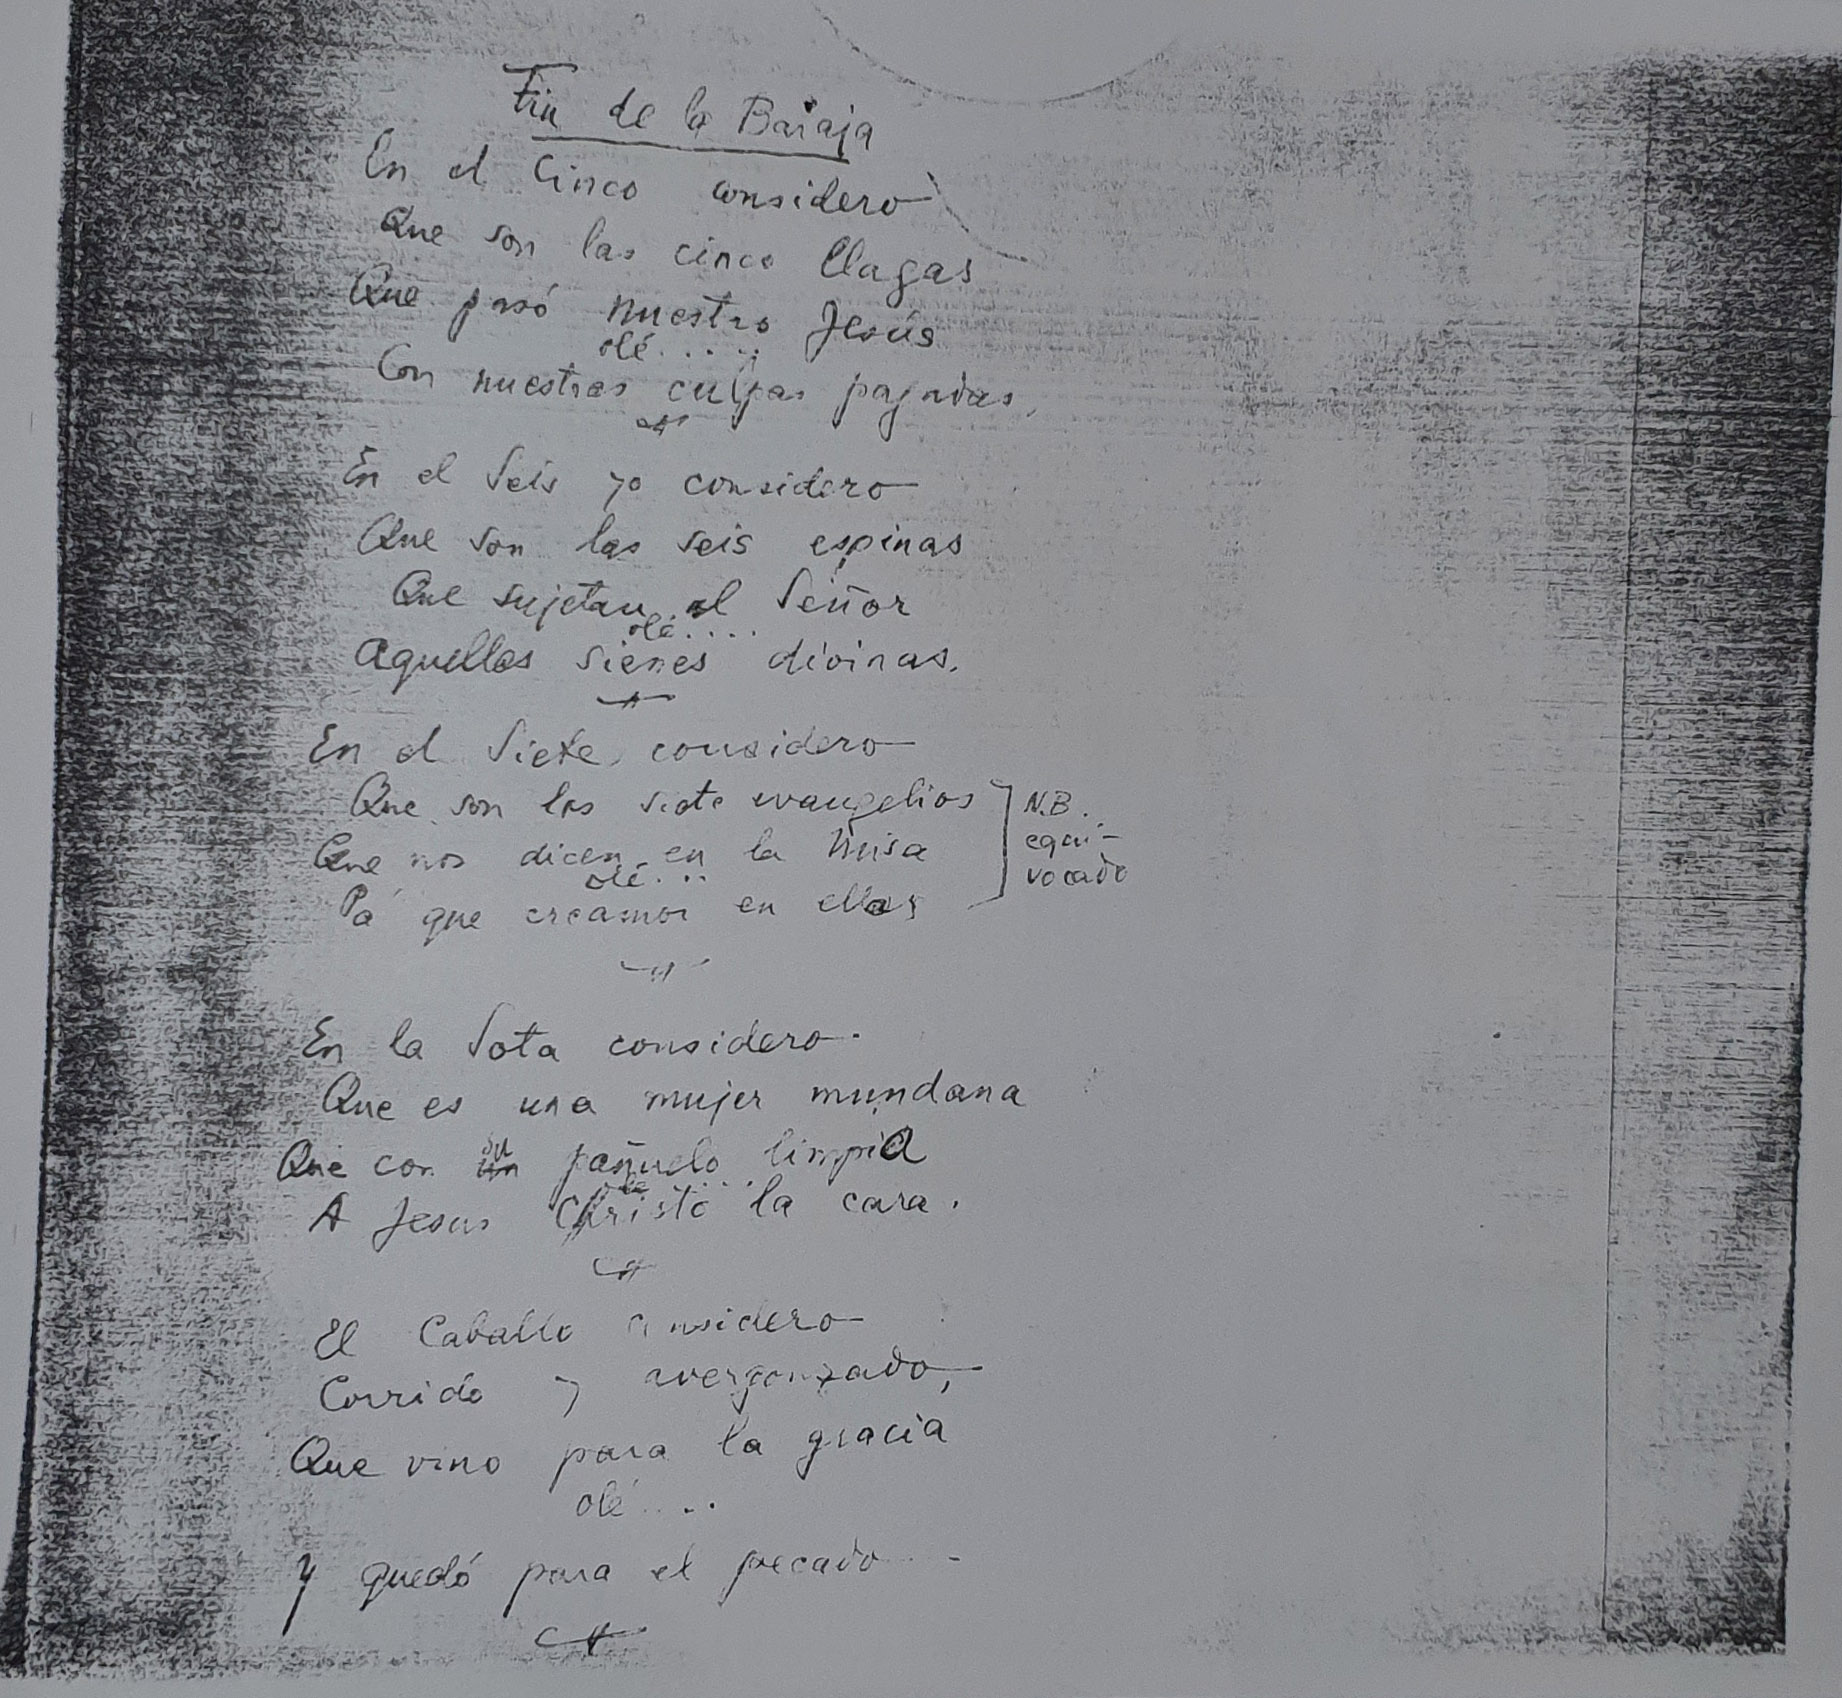 Fin de la Baraja
En el Cinco considero
Que son las cinco llagas
Que pasó nuestro Jesús
olé.....
Con nuestras culpas pagadas.
En el Seis yo considero
Que son las seis espinas
Que sujetan al Señor
olé....
Aquellas sienes divinas.
En el Siete considero
Que son los siete evangelios
Que nos dicen en la Misa
olé...
Pa que creamos en ellos
N.B.
equi-
vocado
En la Sota considero.
Que es una mujer mundana
su
Que con un pañuelo limpia
A Jesus Christo la cara.
El Caballo considero
Corrido y avergonzado,
Que vino para la gracia
olé....
Y quedó para el pecado....